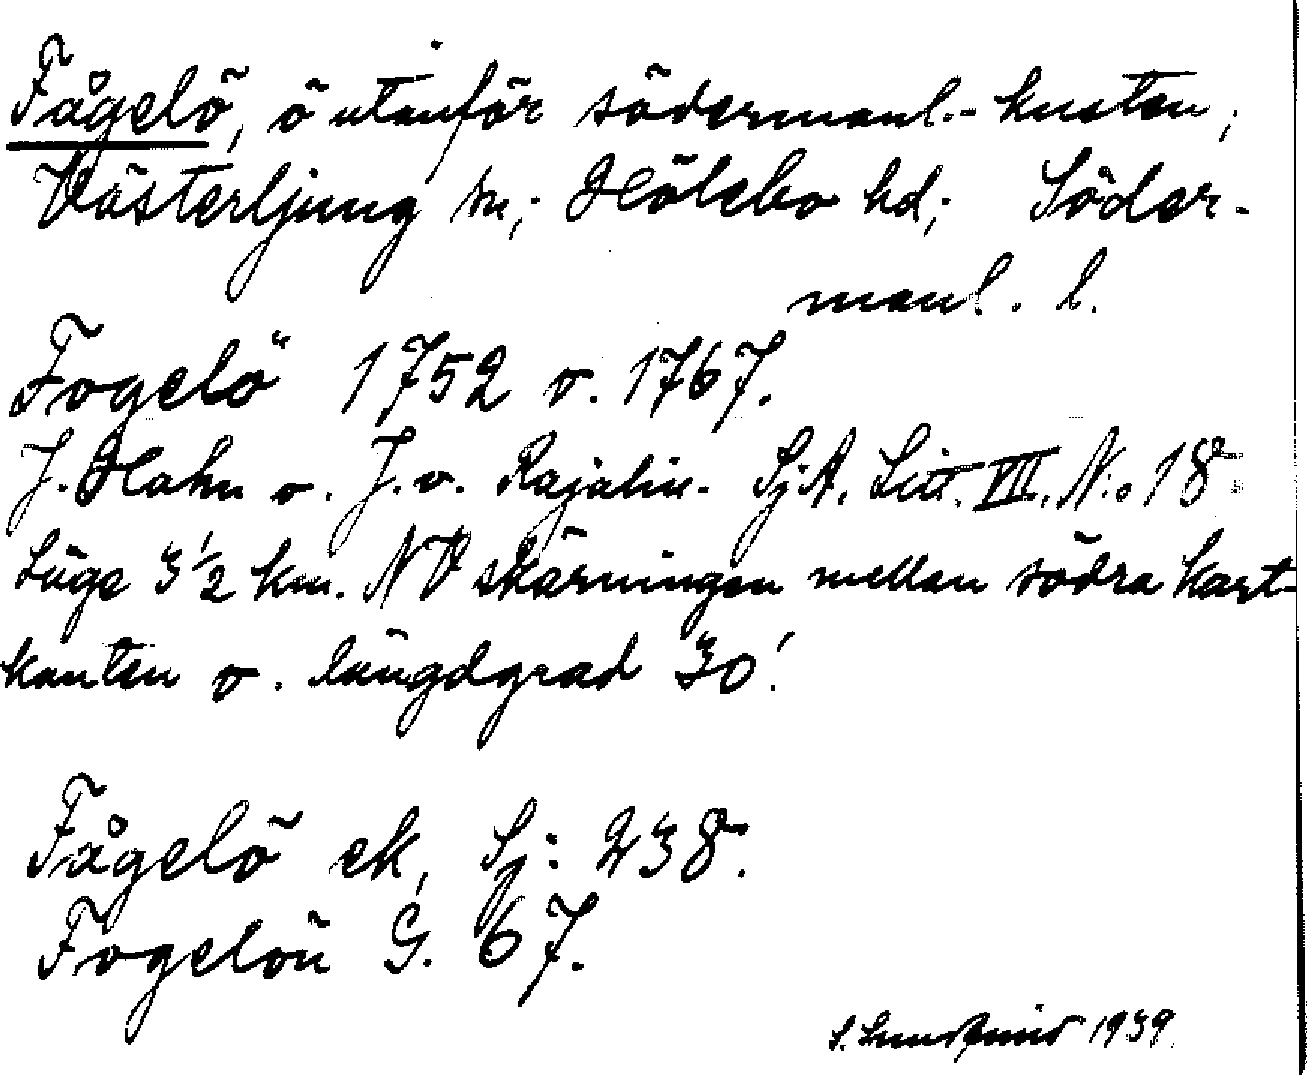 Fågelö, ö utanför södermanl.-kusten,
Västerljung sn; Hölebo hd; Söder-
manl. l.
Fogelö 1752 o. 1767.
J. Hahn o. J. v. Rajalin. SjA. Litt. VIII. No 18.
Läge 3 1/2 km. NV skärningen mellan södra kart-
kanten o. längdgrad 30'.
Fågelö ek, Sj: 238.
Fogelön G. 67.
S. 1939